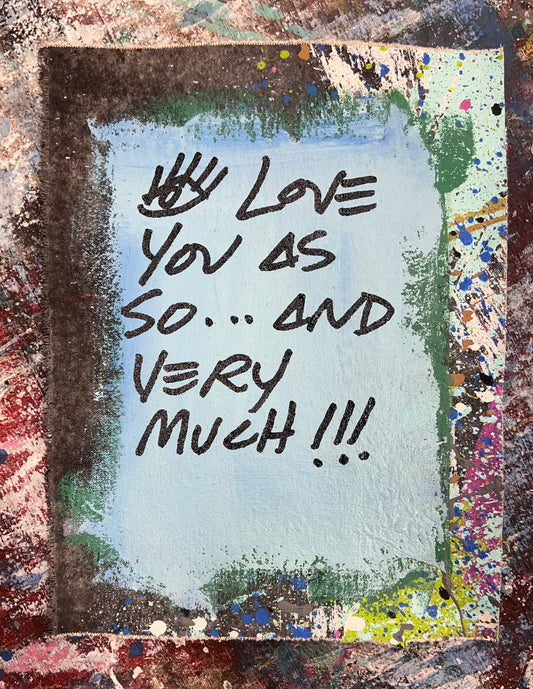 LOVE
YOU AS
SO... AND
VERY
MUCH!!!